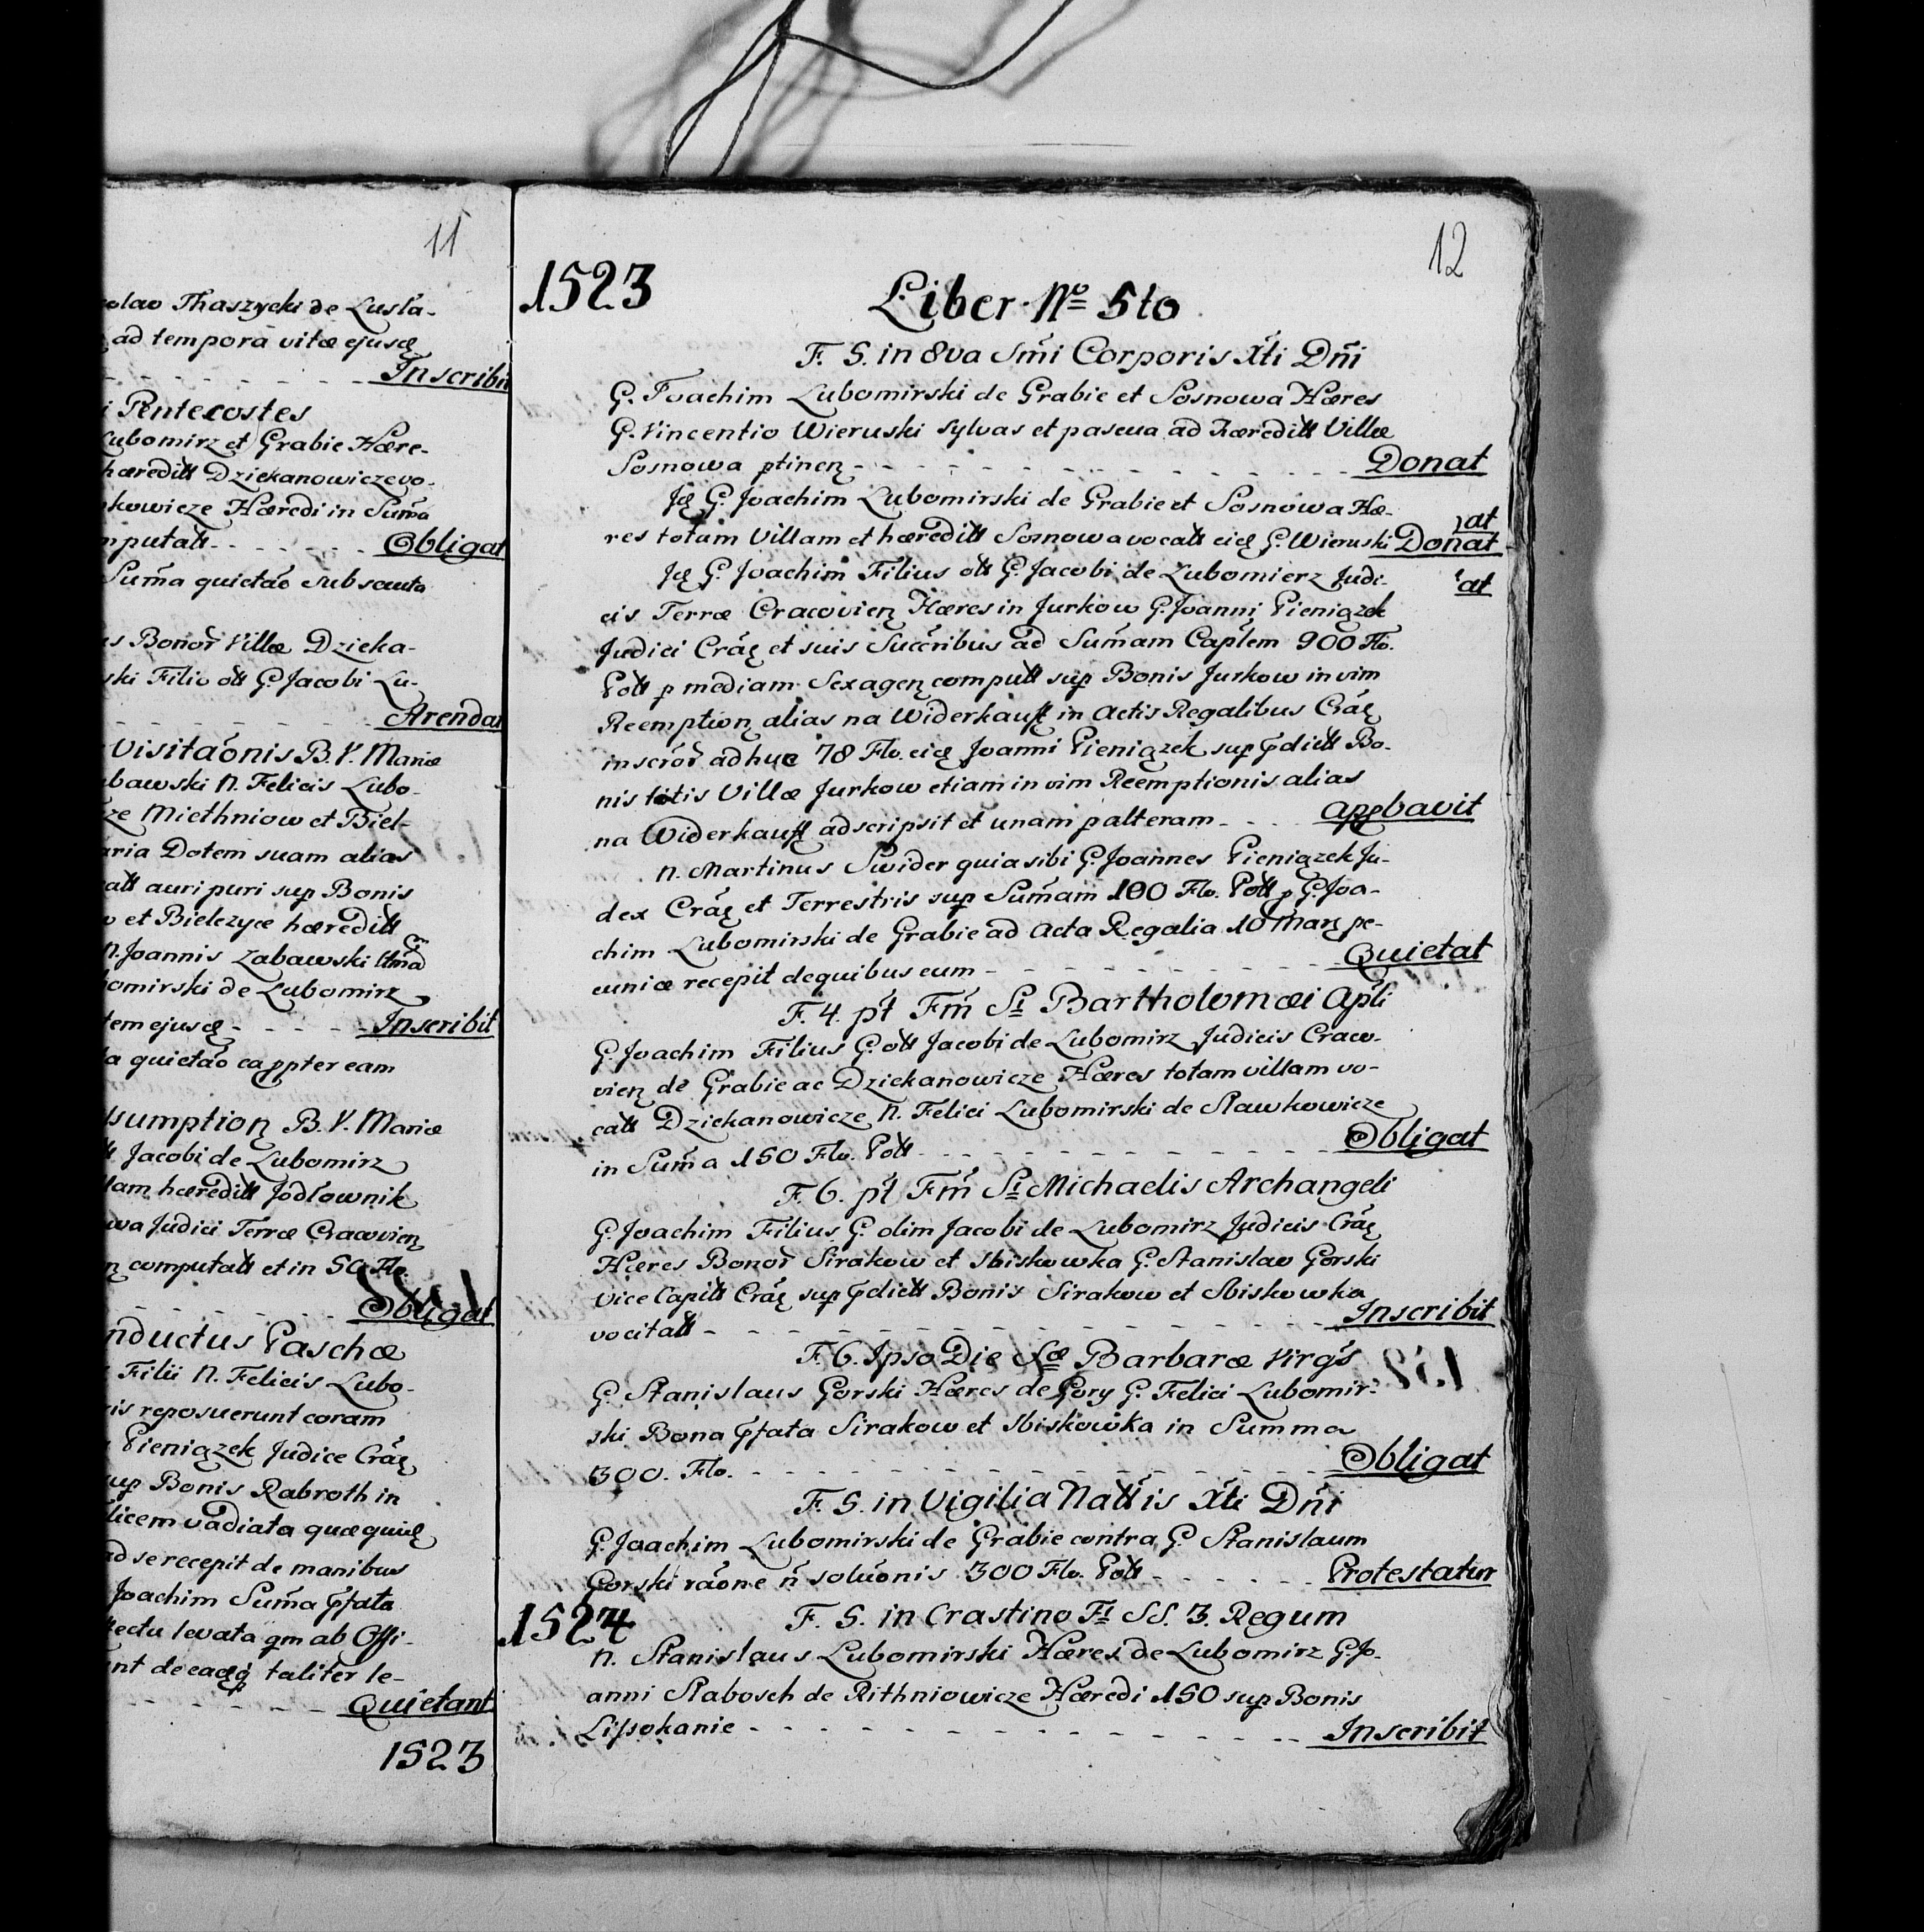 11
olao Thaszycki de Lusła-
ad tempora vitæ ejusq
Inscribit
i Pentecostes
Lubomirz et Grabie Hære-
hæreditt Dziekanowicze vo-
kowicze Hæredi in Sum̃a
mputatt - - - - - Obligat
Sum̃a quietaõ sub scuto
s Bonor̃ Villæ Dzieka-
ski Filio ott G. Jacobi Lu-
Arendat
Visitaõnis B. V. Mariæ
bawski N. Felicis Lubo-
ze Miethniow et Biel-
aria Dotem suam alias
catt auri puri sup Bonis
w et Bielczyce hæreditt
N. Joannis Zabawski
omirski de Lubomirz
tem ejusq - - - - Inscribit
a quietaõ ca ppter eam
sumption B. V. Mariæ
tt Jacobi de Lubomirz
lam hæreditt Jodłownik
wa Judici Terræ Cracovien
n computatt et in 50 Flo.
Obligat
nductus Paschæ
Filii N. Felicis Lubo-
is reposuerunt coram
Pieniązek Judice Crać
sup Bonis Rabroth in
licem vadiata quæ quid
ad se recepit de manibus
Joachim Sum̃a pfata
fectu levata qm ab Offi-
nt de eadq taliter le-
- - - - - - Quietant
1523
12
1523
Liber Nº 5to
F. 5. in 8va Smi Corporis Xti Dñi
G. Joachim Lubomirski de Grabie et Sosnowa Hæres
G. Vincentio Wieruski sylvas et pascua ad Hæreditt Villæ
Sosnowa ptinen - - - - - - - - - - - Donat
Jd G. Joachim Lubomirski de Grabie et Sosnowa Hæ-
at
res totam Villam et hæreditt Sosnowa vocatt eid G. Wieruski Donat
Jd G. Joachim Filius ott G. Jacobi de Lubomierz Judi-
at
cis Terræ Cracovien Hæres in Jurkow G. Joanni Pieniązek
Judici Crać et suis Succribus ad Sum̃am Caplem 900 Flo.
Poll p mediam Sexagen computt sup Bonis Jurkow in vim
Reemption alias na Widerkauff in Actis Regalibus Crać
inscror̃ adhuc 78 Flo. eid Joanni Pieniązek sup pdictt Bo-
nis totis Villæ Jurkow etiam in vim Reemptionis alias
na Widerkauff adscripsit et unam p alteram - - - appbavit
N. Martinus Swider quia sibi G. Joannes Pieniązek Ju-
dex Crać et Terrestris sup Sum̃am 100 Flo. Poll p G. Joa-
chim Lubomirski de Grabie ad Acta Regalia 10 Marc pe-
cuniæ recepit de quibus eum - - - - - - - - Quietat
F. 4. pt Fm̃ Si Bartholomæi Apli
G. Joachim Filius G. ott Jacobi de Lubomirz Judicis Craco-
vien de Grabie ac Dziekanowicze Hæres totam villam vo-
catt Dziekanowicze N. Felici Lubomirski de Sławkowicze
in Sum̃a 150 Flo. Poll - - - - - - - - - Obligat
F. 6. pt Fm̃ Si Michaelis Archangeli
G. Joachim Filius G. olim Jacobi de Lubomirz Judicis Crać
Hæres Bonor̃ Sirakow et Sbiskowka G. Stanislao Gorski
Vice Capitt Crać sup pdictt Bonis Sirakow et Sbiskowka
vocitatt - - - - - - - - - - - - Inscribit
F. 6. Ipso Die Sæ Barbaræ Virgs
G. Stanislaus Gorski Hæres de Gory G. Felici Lubomir-
ski Bona pfata Sirakow et Sbiskowka in Summa
300. Flo. - - - - - - - - - - - - Obligat
F. 5. in Vigilia Nattis Xti Dñi
G. Joachim Lubomirski de Grabie contra G. Stanislaum
Gorski raõne ñ soluõnis 300 Flo. Poll - - - - - Protestatur
1524
F. 5. in Crastino Fi SS. 3. Regum
N. Stanislaus Lubomirski Hæres de Lubomirz G. Jo-
anni Slabosch de Rithniowicze Hæredi 150 sup Bonis
Lipsokanie - - - - - - - - - - - Inscribit